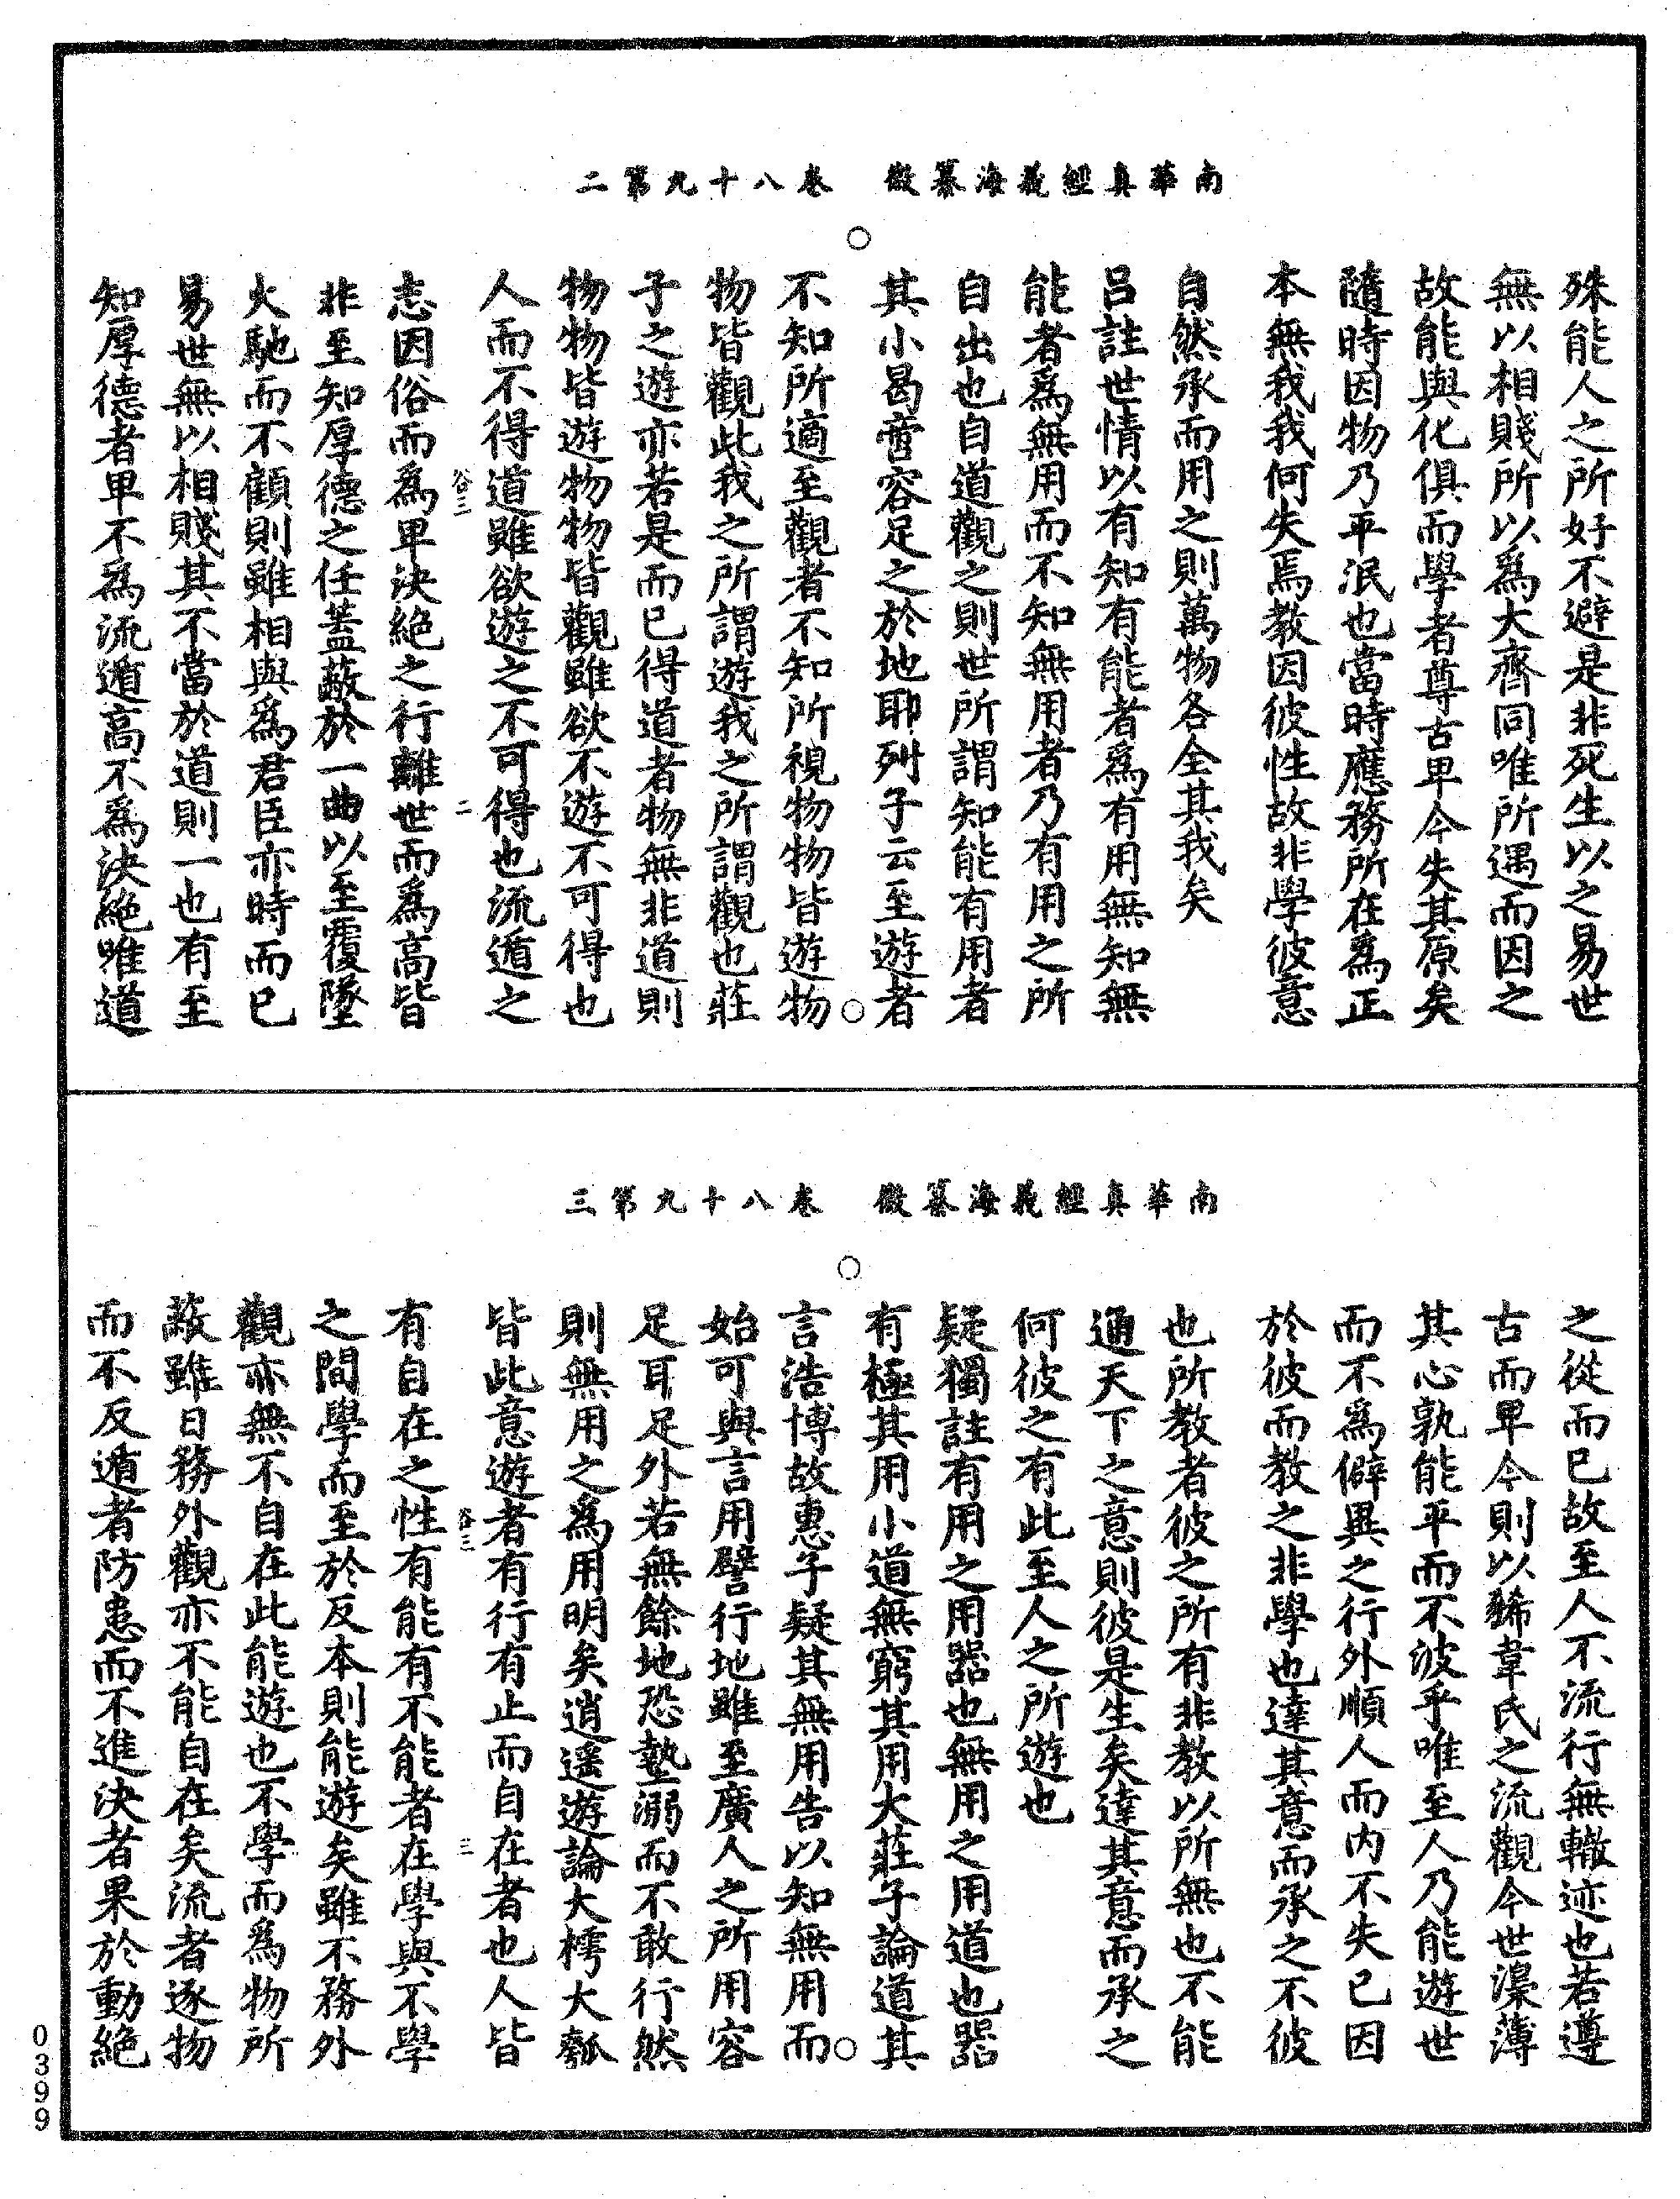 南華真經義海纂微　卷八十九第二
殊能人之所好不避是非死生以之易世
無以相賤所以爲大齊同唯所遇而因之
故能與化俱而學者尊古卑今失其原矣
隨時因物乃平泯也當時應務所在爲正
本無我我何失焉教因彼性故非學彼意
自然承而用之則萬物各全其我矣
呂註世情以有知有能者爲有用無知無
能者爲無用而不知無用者乃有用之所
自出也自道觀之則世所謂知能有用者
其小曷啻容足之於地耶列子云至遊者
不知所適至觀者不知所視物物皆遊物
物皆觀此我之所謂遊我之所謂觀也莊
子之遊亦若是而已得道者物無非道則
物物皆遊物物皆觀雖欲不遊不可得也
人而不得道雖欲遊之不可得也流遁之
谷三　二
志因俗而爲卑決絕之行離世而爲高皆
非至知厚德之任蓋蔽於一曲以至覆墜
火馳而不顧則雖相與爲君臣亦時而已
易世無以相賤其不當於道則一也有至
知厚德者卑不爲流遁高不爲決絕唯道
南華真經義海纂微　卷八十九第三
之從而已故至人不流行無轍迹也若遵
古而卑今則以狶韋氏之流觀今世澆薄
其心孰能平而不波乎唯至人乃能遊世
而不爲僻異之行外順人而内不失已因
於彼而教之非學也達其意而承之不彼
也所教者彼之所有非教以所無也不能
通天下之意則彼是生矣達其意而承之
何彼之有此至人之所遊也
疑獨註有用之用器也無用之用道也器
有極其用小道無窮其用大莊子論道其
言浩博故惠子疑其無用告以知無用而
始可與言用譬行地雖至廣人之所用容
足耳足外若無餘地恐墊溺而不敢行然
則無用之爲用明矣逍遥遊論大樗大瓠
皆此意遊者有行有止而自在者也人皆
谷三　三
有自在之性有能有不能者在學與不學
之間學而至於反本則能遊矣雖不務外
觀亦無不自在此能遊也不學而爲物所
蔽雖日務外觀亦不能自在矣流者逐物
而不反遁者防患而不進決者果於動絕
0399